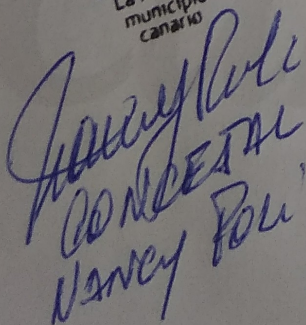 La
municipio
canario
Nancy Poli
CONCEJAL
NANCY POLI